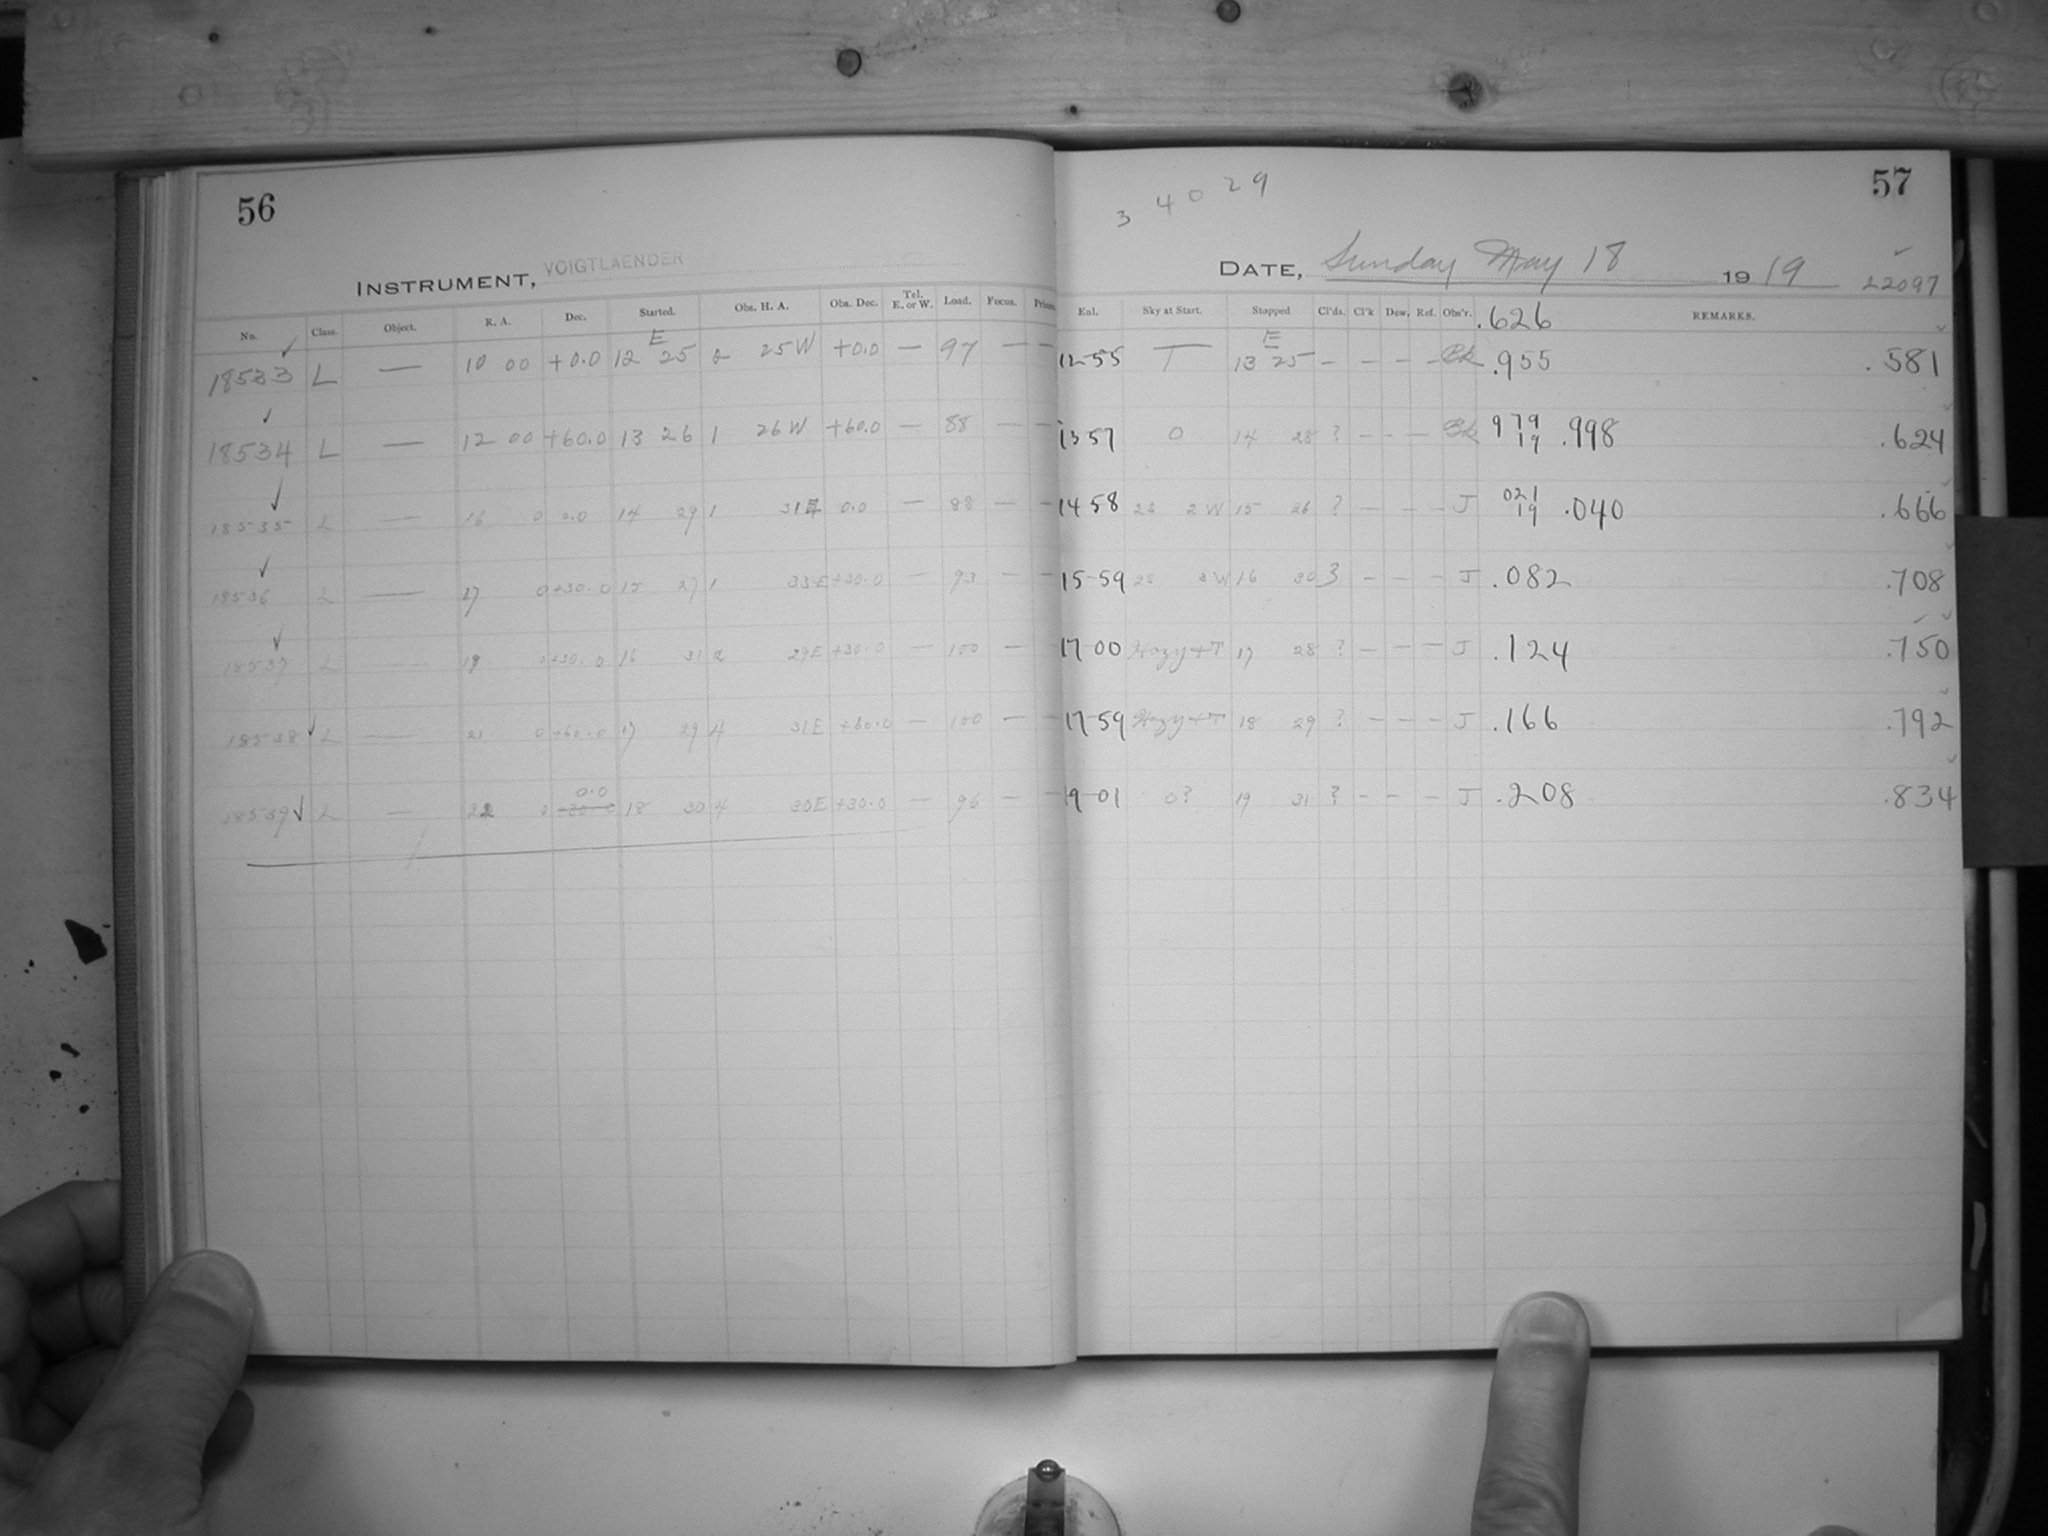 56
INSTRUMENT, VOIGTLAENDER
No. Class. Object. R. A. Dec. Started. Obs. H. A. Obs. Dec. Tel. E. or W. Load. Focus.
E
18533 L — 10 00 +0.0 12 25 2 25 W +0.0 — 97 — —
18534 L — 12 00 +60.0 13 26 1 26 W +60.0 — 88 — —
18535 L — 16 0 0.0 14 29 1 31 E 0.0 — 88 — —
18536 L — 17 0 +30.0 15 27 1 33 E +30.0 — 93 — —
18537 L — 19 0 +30.0 16 31 2 29 E +30.0 — 100 —
18538 L — 21 0 +60.0 17 29 4 31 E +60.0 — 100 — —
0.0
18539 L — 22 0 +30.0 18 30 4 30 E +30.0 — 96 — —
57
3 4 0 29
DATE, Sunday May 18 1919 22097
Eql. Sky at Start. Stopped Cl'ds. Cl'k Dew. Ref. Obs'r. .626 REMARKS.
E
12-55 T 13 25 – – – – Bk .955 .581
13 57 0 14 28 ? – – – Bk 979 19 .998 .624
14 58 2S 2W 15 26 ? – – – J 021 19 .040 .666
15-59 2S 2W 16 30 3 – – – J .082 .708
17-00 Hazy + T 17 28 ? – – – J .124 .750
17-59 Hazy + T 18 29 ? – – – J .166 .792
19-01 0? 19 31 ? – – – J .208 .834